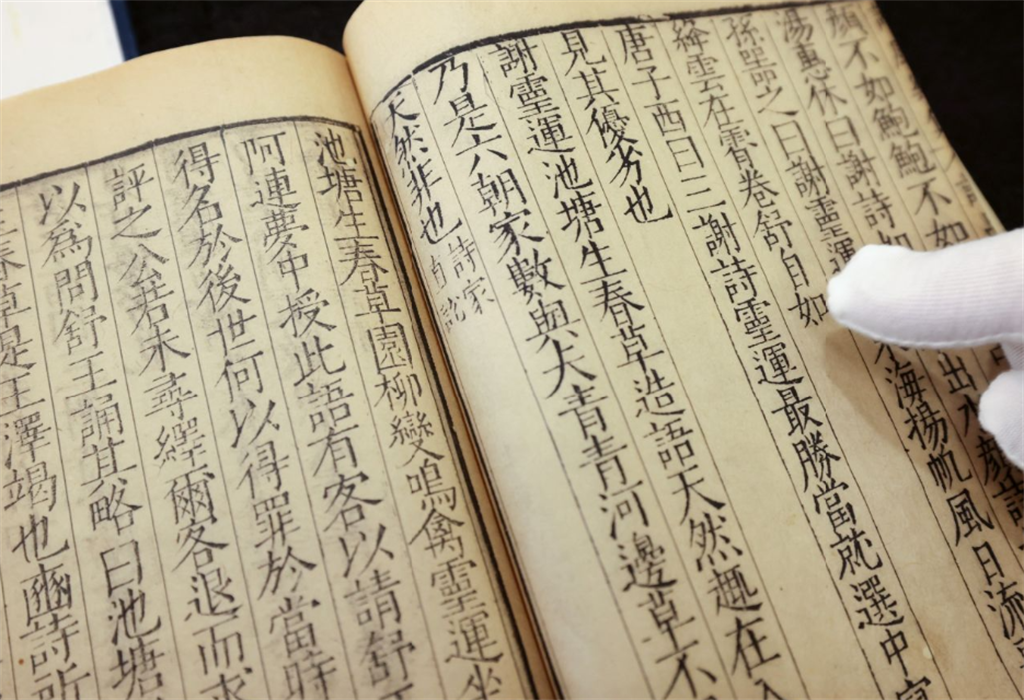 顏不如鮑鮑不如
湯惠休曰謝詩如出水顏詩
孫噐之曰謝靈運海揚帆風日流
絳雲在霄卷舒自如
唐子西曰三謝詩靈運最勝當就選中
見其優劣也
謝靈運池塘生春草造語天然趣在
乃是六朝家數與夫青青河邊草不
天然非也詩家直說
池塘生春草園柳變鳴禽靈運坐
阿連夢中授此語有客以請舒
得名於後世何以得罪於當時
評之公若未尋繹爾客退而求
以爲問舒王誦其略曰池塘
生春草是王澤竭也豳詩所